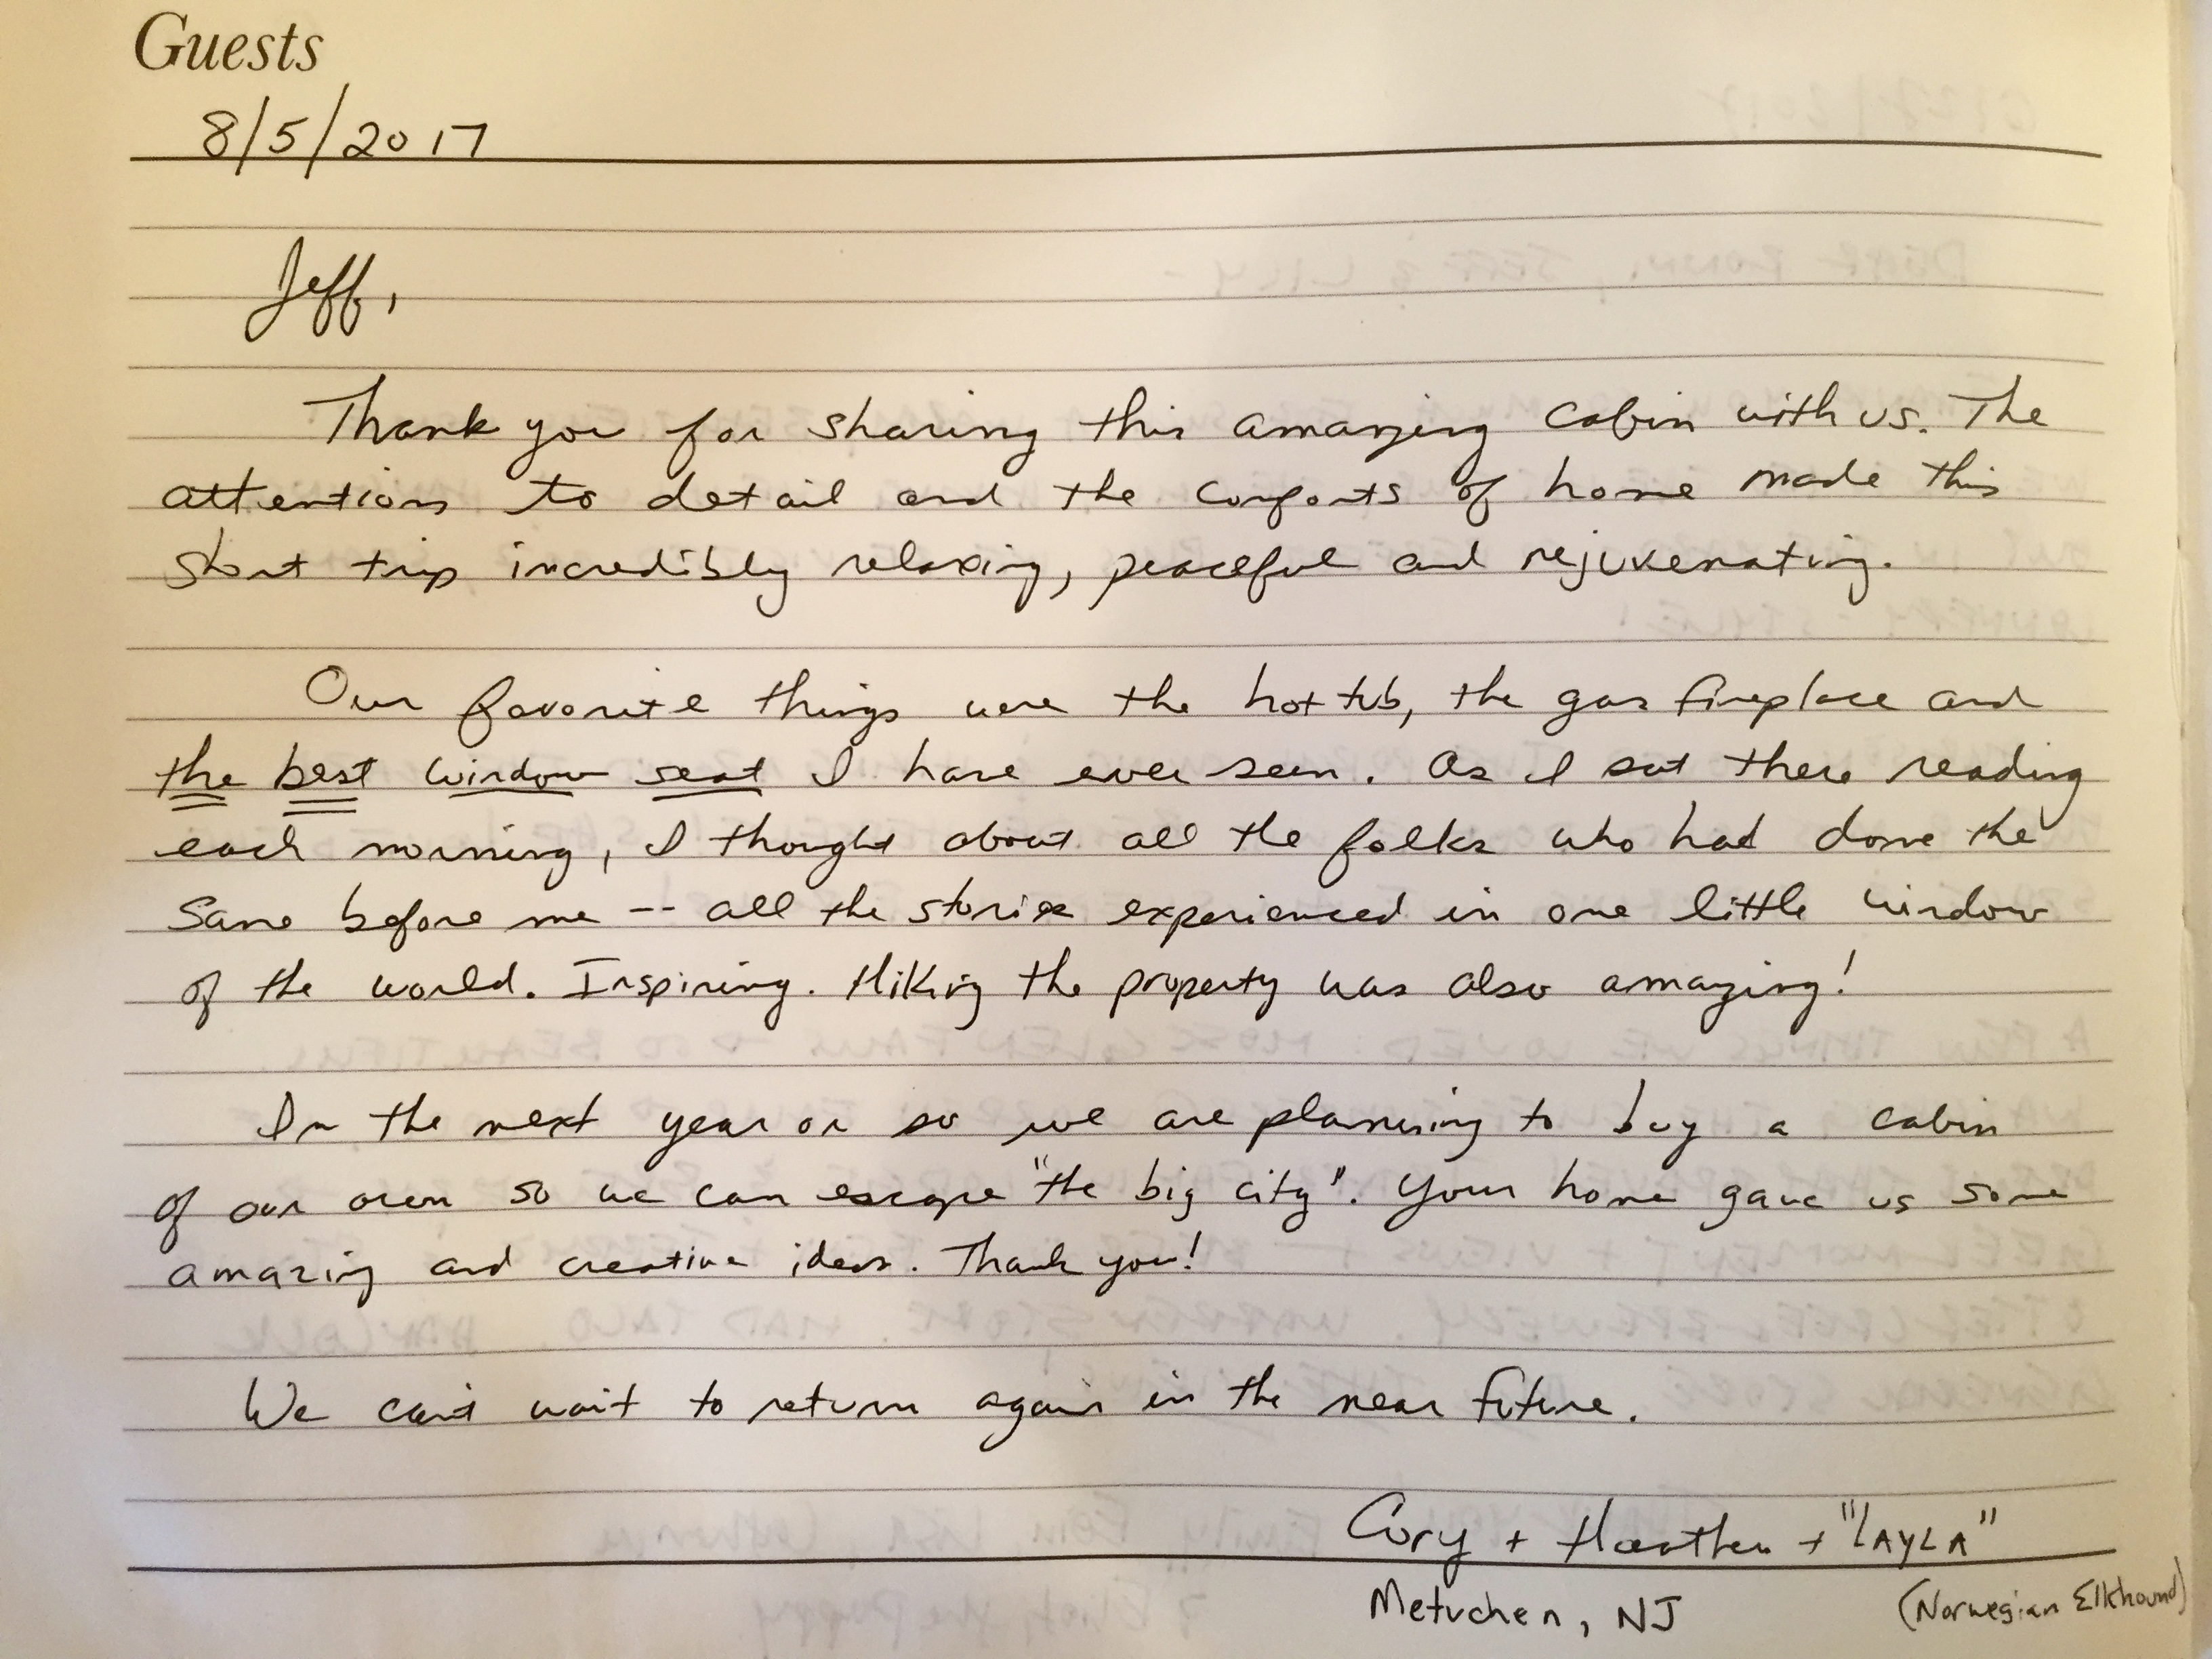 Guests
8/5/2017
Jeff,
Thank you for sharing this amazing cabin with us. The
attention to detail and the comforts of home made this
short trip incredibly relaxing, peaceful and rejuvenating.
Our favorite things were the hot tub, the gas fireplace and
the best window seat I have ever seen. As I sat there reading
each morning, I thought about all the folks who had done the
same before me -- all the stories experienced in one little window
of the world. Inspiring. Hiking the property was also amazing!
In the next year or so we are planning to buy a cabin
of our own so we can escape "the big city". Your home gave us some
amazing and creative ideas. Thank you!
We can't wait to return again in the near future.
Cory + Heather + "LAYLA"
Metuchen, NJ (Norwegian Elkhound)